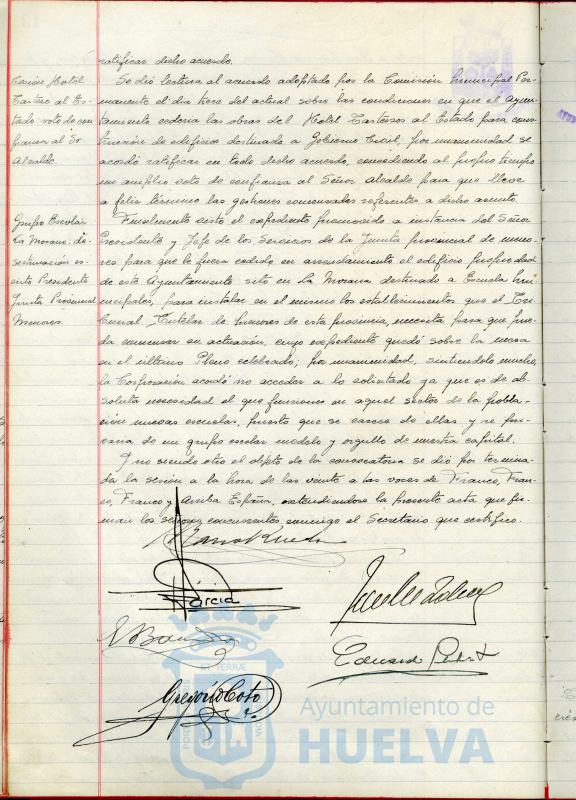 ratificar dicho acuerdo.
Cesión Hotel
Tartero al Es-
tado voto de con
fianza al Sr
Alcalde.
Se dió lectura al acuerdo adoptado por la Comisión Municipal Per-
manente el dia trece del actual sobre las condiciones en que el Ayun-
tamiento cederia las obras del Hotel Tartessos al Estado para cons-
trucción de edificios destinado a Gobierno Civil, por unanimidad se
acordó ratificar en todo dicho acuerdo, concediendo al propio tiempo
un amplio voto de confianza al Señor Alcalde para que lleve
a feliz término las gestiones comenzadas referentes a dicho asunto.
Grupo Escolar
La Morana. de-
sestimación es-
crito Presidente
Junta Provincial
Menores.
Finalmente visto el expediente promovido a instancia del Señor
Presidente y Jefe de los Servicios de la Junta provincial de meno-
res para que le fuera cedido en arrendamiento el edificio propiedad
de este Ayuntamiento sito en La Morana destinado a Escuela Mu-
nicipales, para instalar en el mismo los establecimientos que el Tri-
bunal Tutelar de Menores de esta provincia, necesita para que pue-
da comenzar su actuación, cuyo expediente quedó sobre la mesa
en el último Pleno celebrado; por unanimidad, sintiendolo mucho,
la Corporación acordó no acceder a lo solicitado ya que es de ab-
soluta necesidad el que funcionen en aquel sector de la pobla-
ción nuevas escuelas, puesto que se carece de ellas y se pri-
varia de un grupo escolar modelo y orgullo de nuestra capital.
Y no siendo otro el objeto de la convocatoria se dió por termina-
da la sesión a la hora de las veinte a las voces de Franco, Fran-
co, Franco y Arriba España, extendiendose la presente acta que fir-
man los señores concurrentes conmigo el Secretario que certifico.
García
Eduardo
Gregorio Coto
PORTUS
ET TERRÆ
Ayuntamiento de
HUELVA